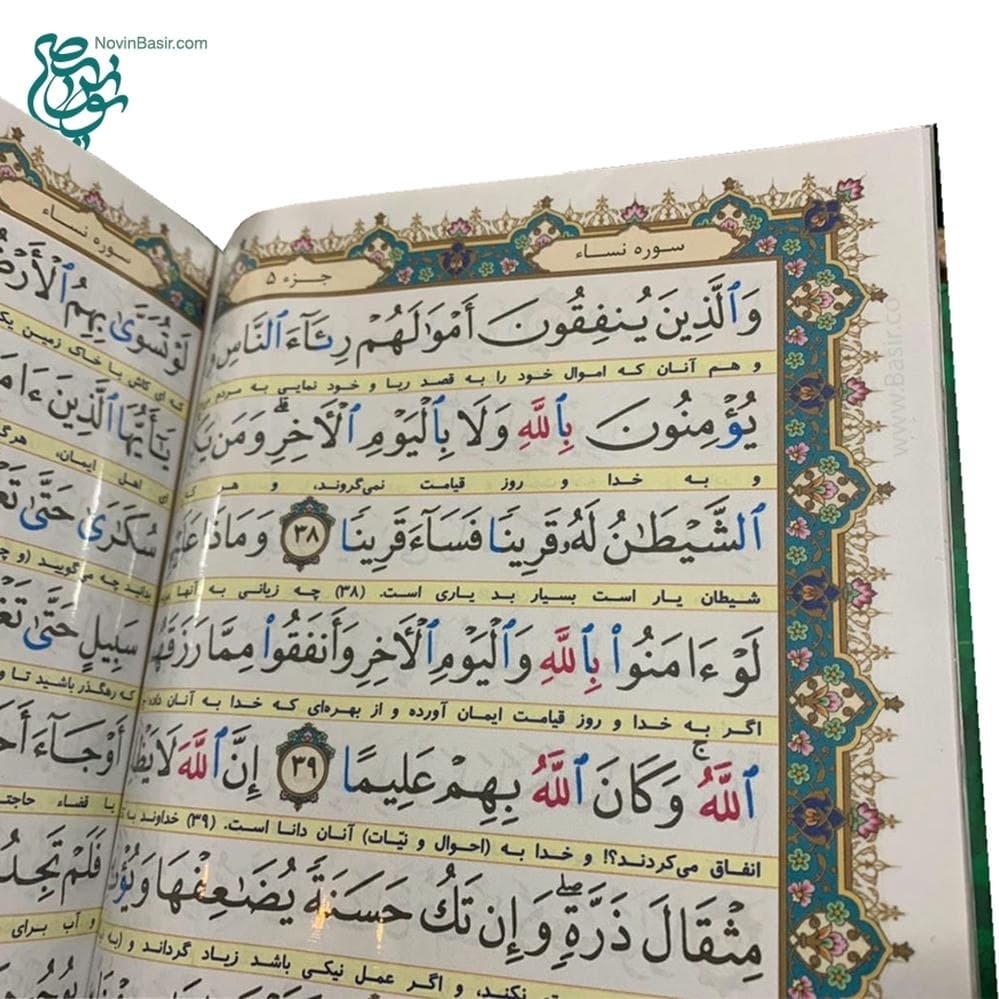 NovinBasir.com
سوره نساء
جزء ۵
وَٱلَّذِينَ يُنفِقُونَ أَمْوَٰلَهُمْ رِئَآءَ ٱلنَّاسِ وَ
و هم آنان که اموال خود را به قصد ریا و خود نمایی به مردم
يُؤْمِنُونَ بِٱللَّهِ وَلَا بِٱلْيَوْمِ ٱلْأَخِرِ ۗ وَمَن
و به خدا و روز قیامت نمی‌گروند، و هر که
ٱلشَّيْطَٰنُ لَهُۥ قَرِينًا فَسَآءَ قَرِينًا ۳۸ وَمَاذَا
شیطان یار است بسیار بد یاری است. (۳۸) چه زیانی به آنها
لَوْ ءَامَنُوا۟ بِٱللَّهِ وَٱلْيَوْمِ ٱلْأَخِرِ وَأَنفَقُوا۟ مِمَّا
اگر به خدا و روز قیامت ایمان آورده و از بهره‌ای که خدا به آنان
ٱللَّهُ ۚ وَكَانَ ٱللَّهُ بِهِمْ عَلِيمًا ۳۹ إِنَّ ٱللَّهَ لَا
انفاق می‌کردند؟! و خدا به (احوال و نیّات) آنان دانا است. (۳۹) خداوند به
مِثْقَالَ ذَرَّةٍ ۖ وَإِن تَكُ حَسَنَةً يُضَٰعِفْهَا وَ
نکند، و اگر عمل نیکی باشد زیاد گرداند و
سوره نساء
لَوْ تُسَوَّىٰ بِهِمُ
که ای کاش با خاک زمین
يَٰٓأَيُّهَا ٱلَّذِينَ
ای اهل ایمان،
سُكَٰرَىٰ حَتَّىٰ
بدانید چه می‌گویید
سَبِيلٍ حَتَّىٰ
که رهگذر باشید تا
أَوْ جَآءَ
یا قضاء
فَلَمْ
و آب برای
www.Basir.co